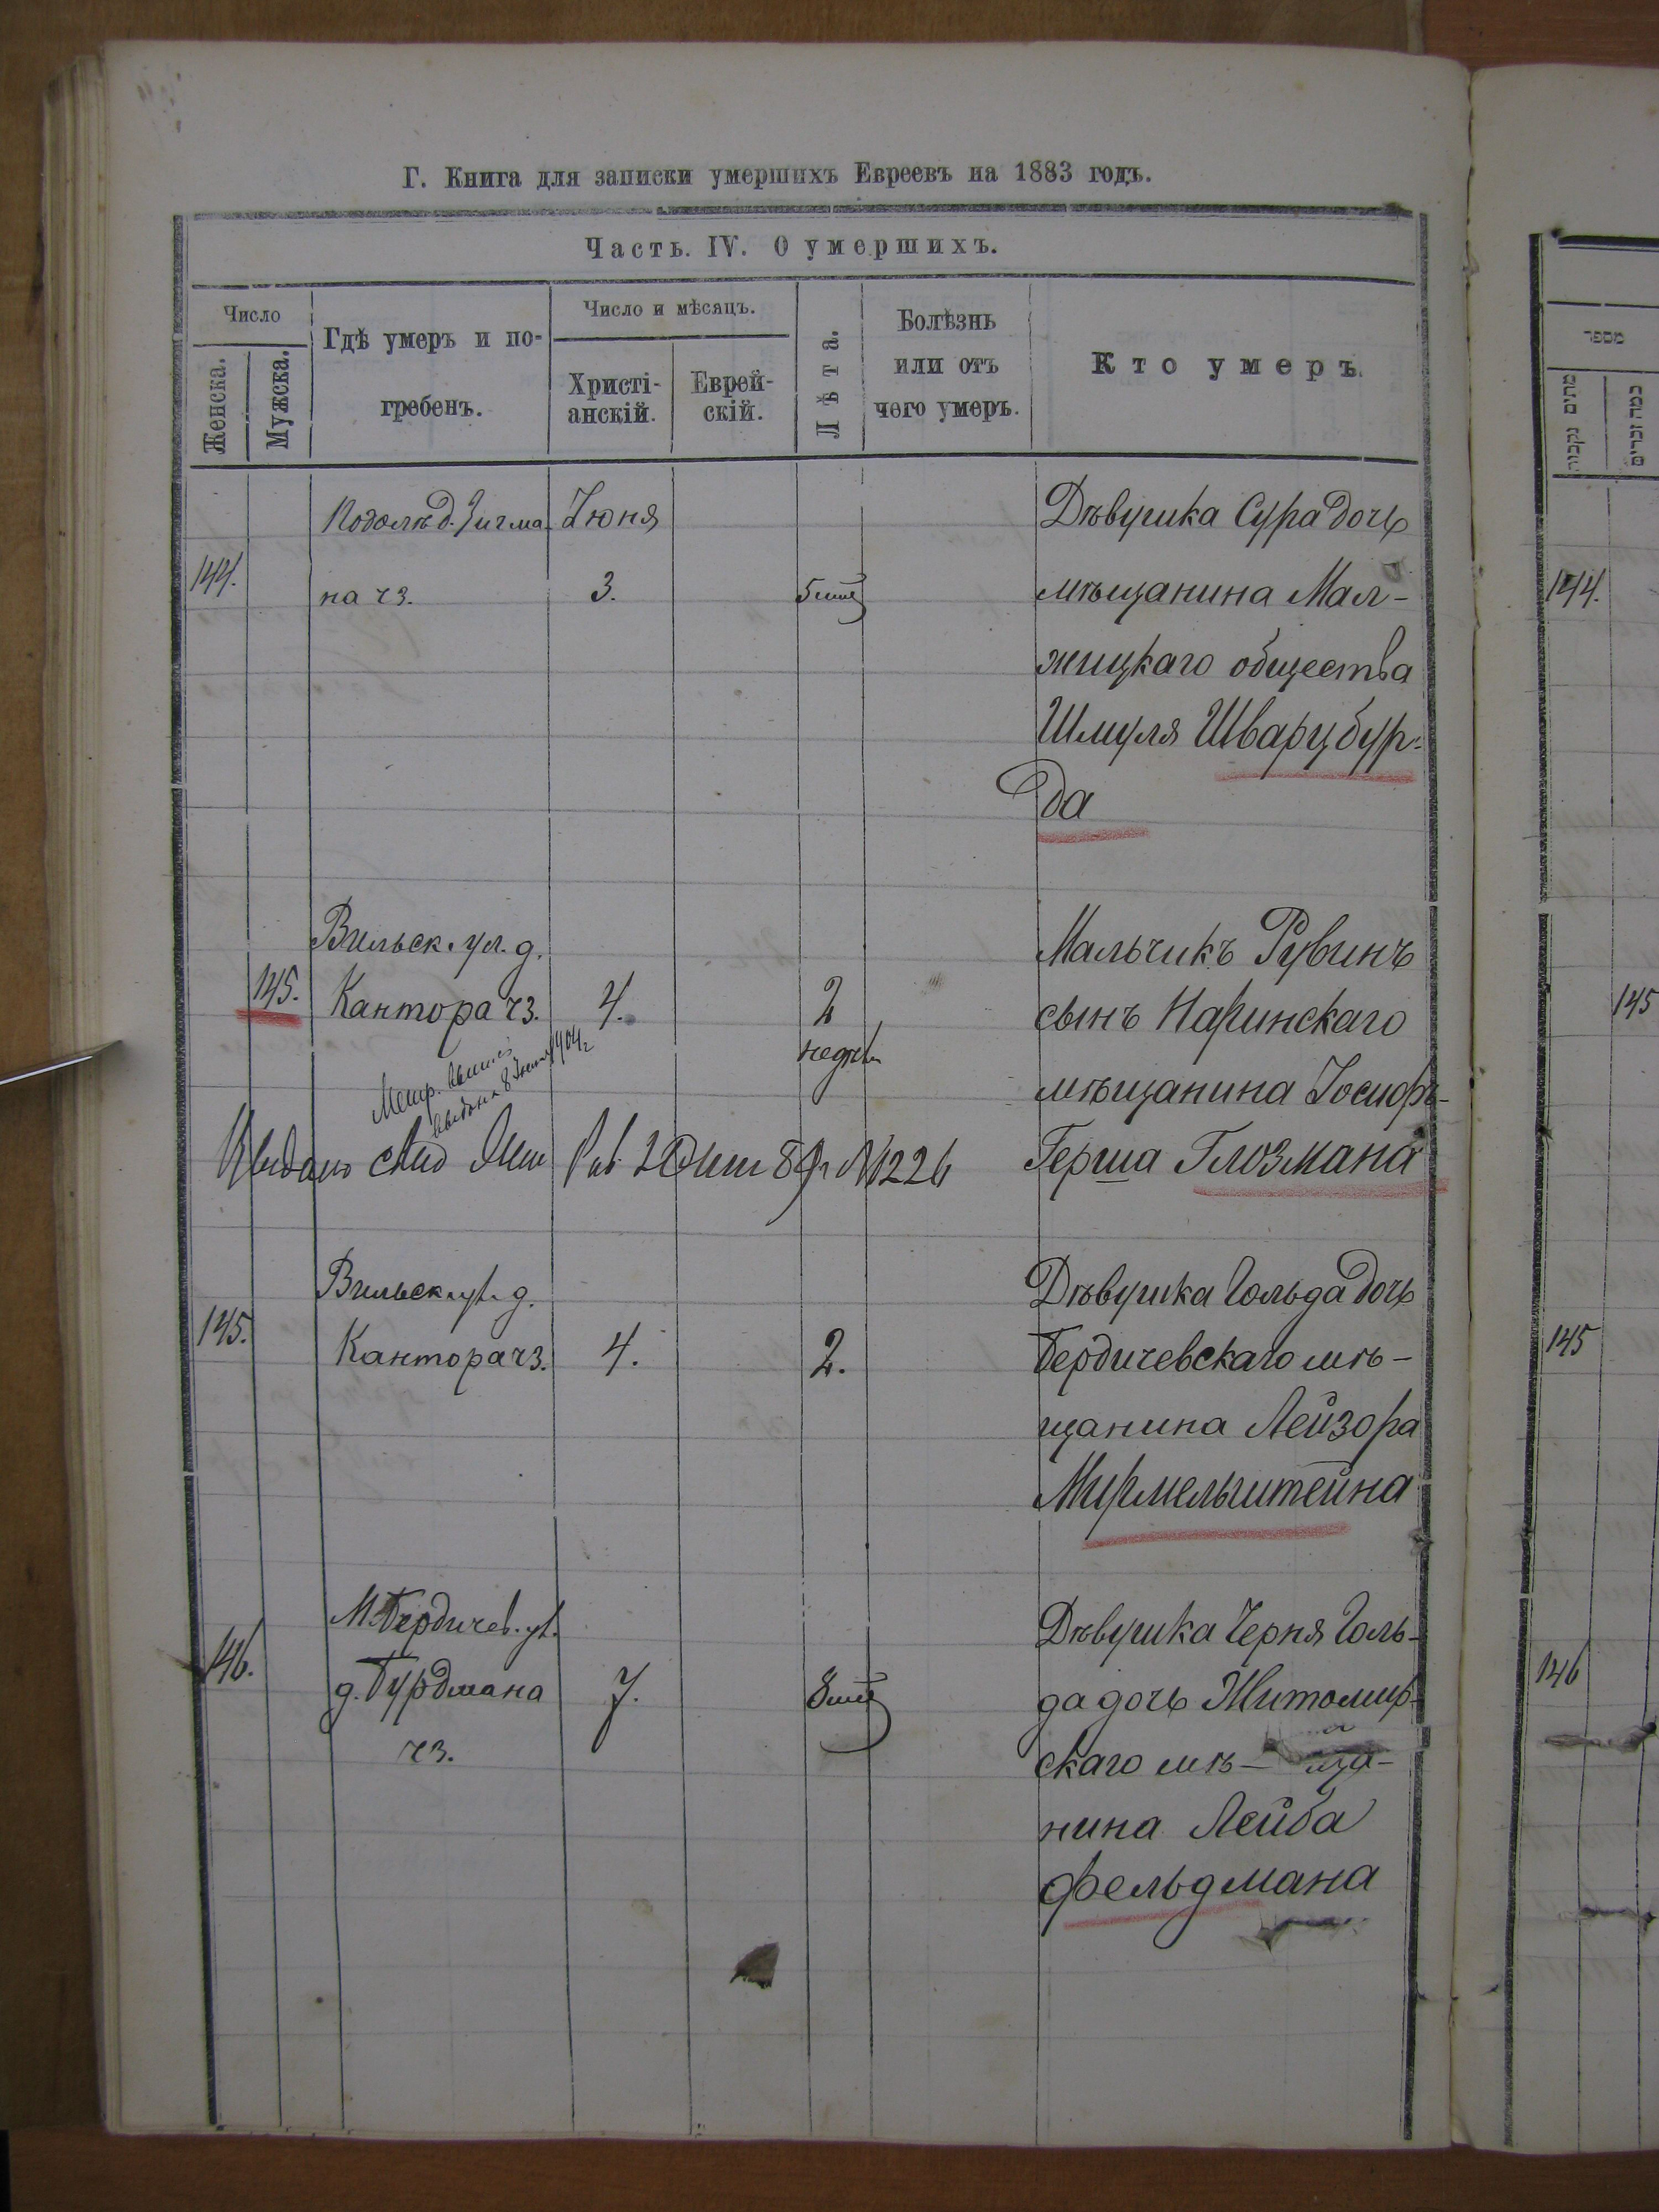 Г. Книга для записки умершихъ Евреевъ на 1883 годъ.
Часть. IV. О умершихъ.
Число
Женска.
Мужска.
Гдѣ умеръ и по-
гребенъ.
Число и мѣсяцъ.
Христі-
анскій.
Еврей-
скій.
Лѣта.
Болѣзнь
или отъ
чего умеръ.
Кто умеръ.
144.
Подолѣ д. Зигма-
на чз.
Іюня
3.
Дѣвушка Сура дочь
мѣщанина Мал-
жицкаго общества
Шмуля Шварцбур-
да
145.
Вильск. ул. д.
Кантора чз.
4.
2
недѣли
Мальчикъ Рувинъ
сынъ Наринскаго
мѣщанина Іосифъ-
Герша Глозмана
Метр.
выдана 8 1904 г
Выдано № 226
145.
Вильск. ул. д.
Кантора чз.
4.
2.
Дѣвушка Гольда дочь
Бердичевскаго мѣ-
щанина Лейзора
Мирмельштейна
146.
М. Бердичев. ул.
д. Бурдмана
чз.
7.
Дѣвушка Черня Голь-
да дочь Житомир-
скаго мѣ- ща-
нина Лейба
Фельдмана
144.
145
145
146